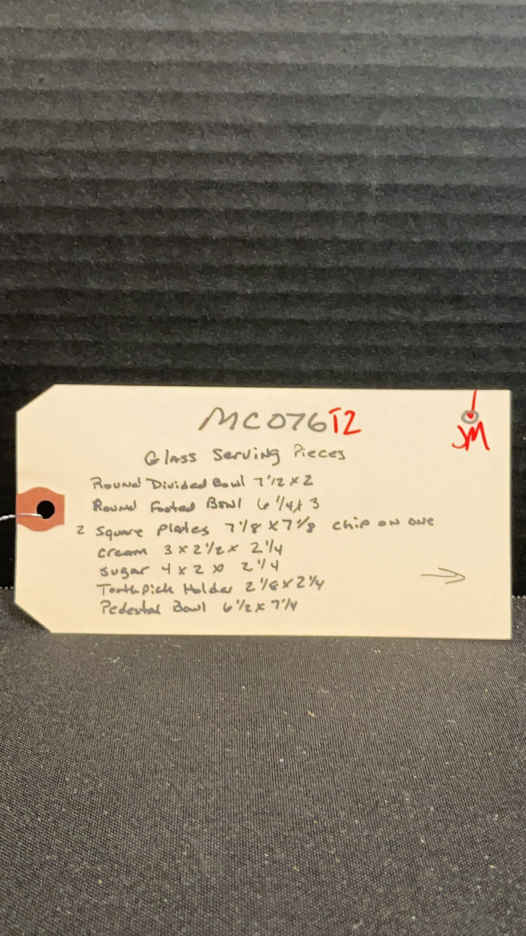 MC076T2
JM
Glass Serving Pieces
Round Divided Bowl 7 1/2 x 2
Round Footed Bowl 6 1/4 x 3
2 Square Plates 7 1/8 x 7 1/8 chip on one
cream 3 x 2 1/2 x 2 1/4
sugar 4 x 2 x 2 1/4
Toothpick Holder 2 1/8 x 2 1/4
Pedestal Bowl 6 1/2 x 7 1/4